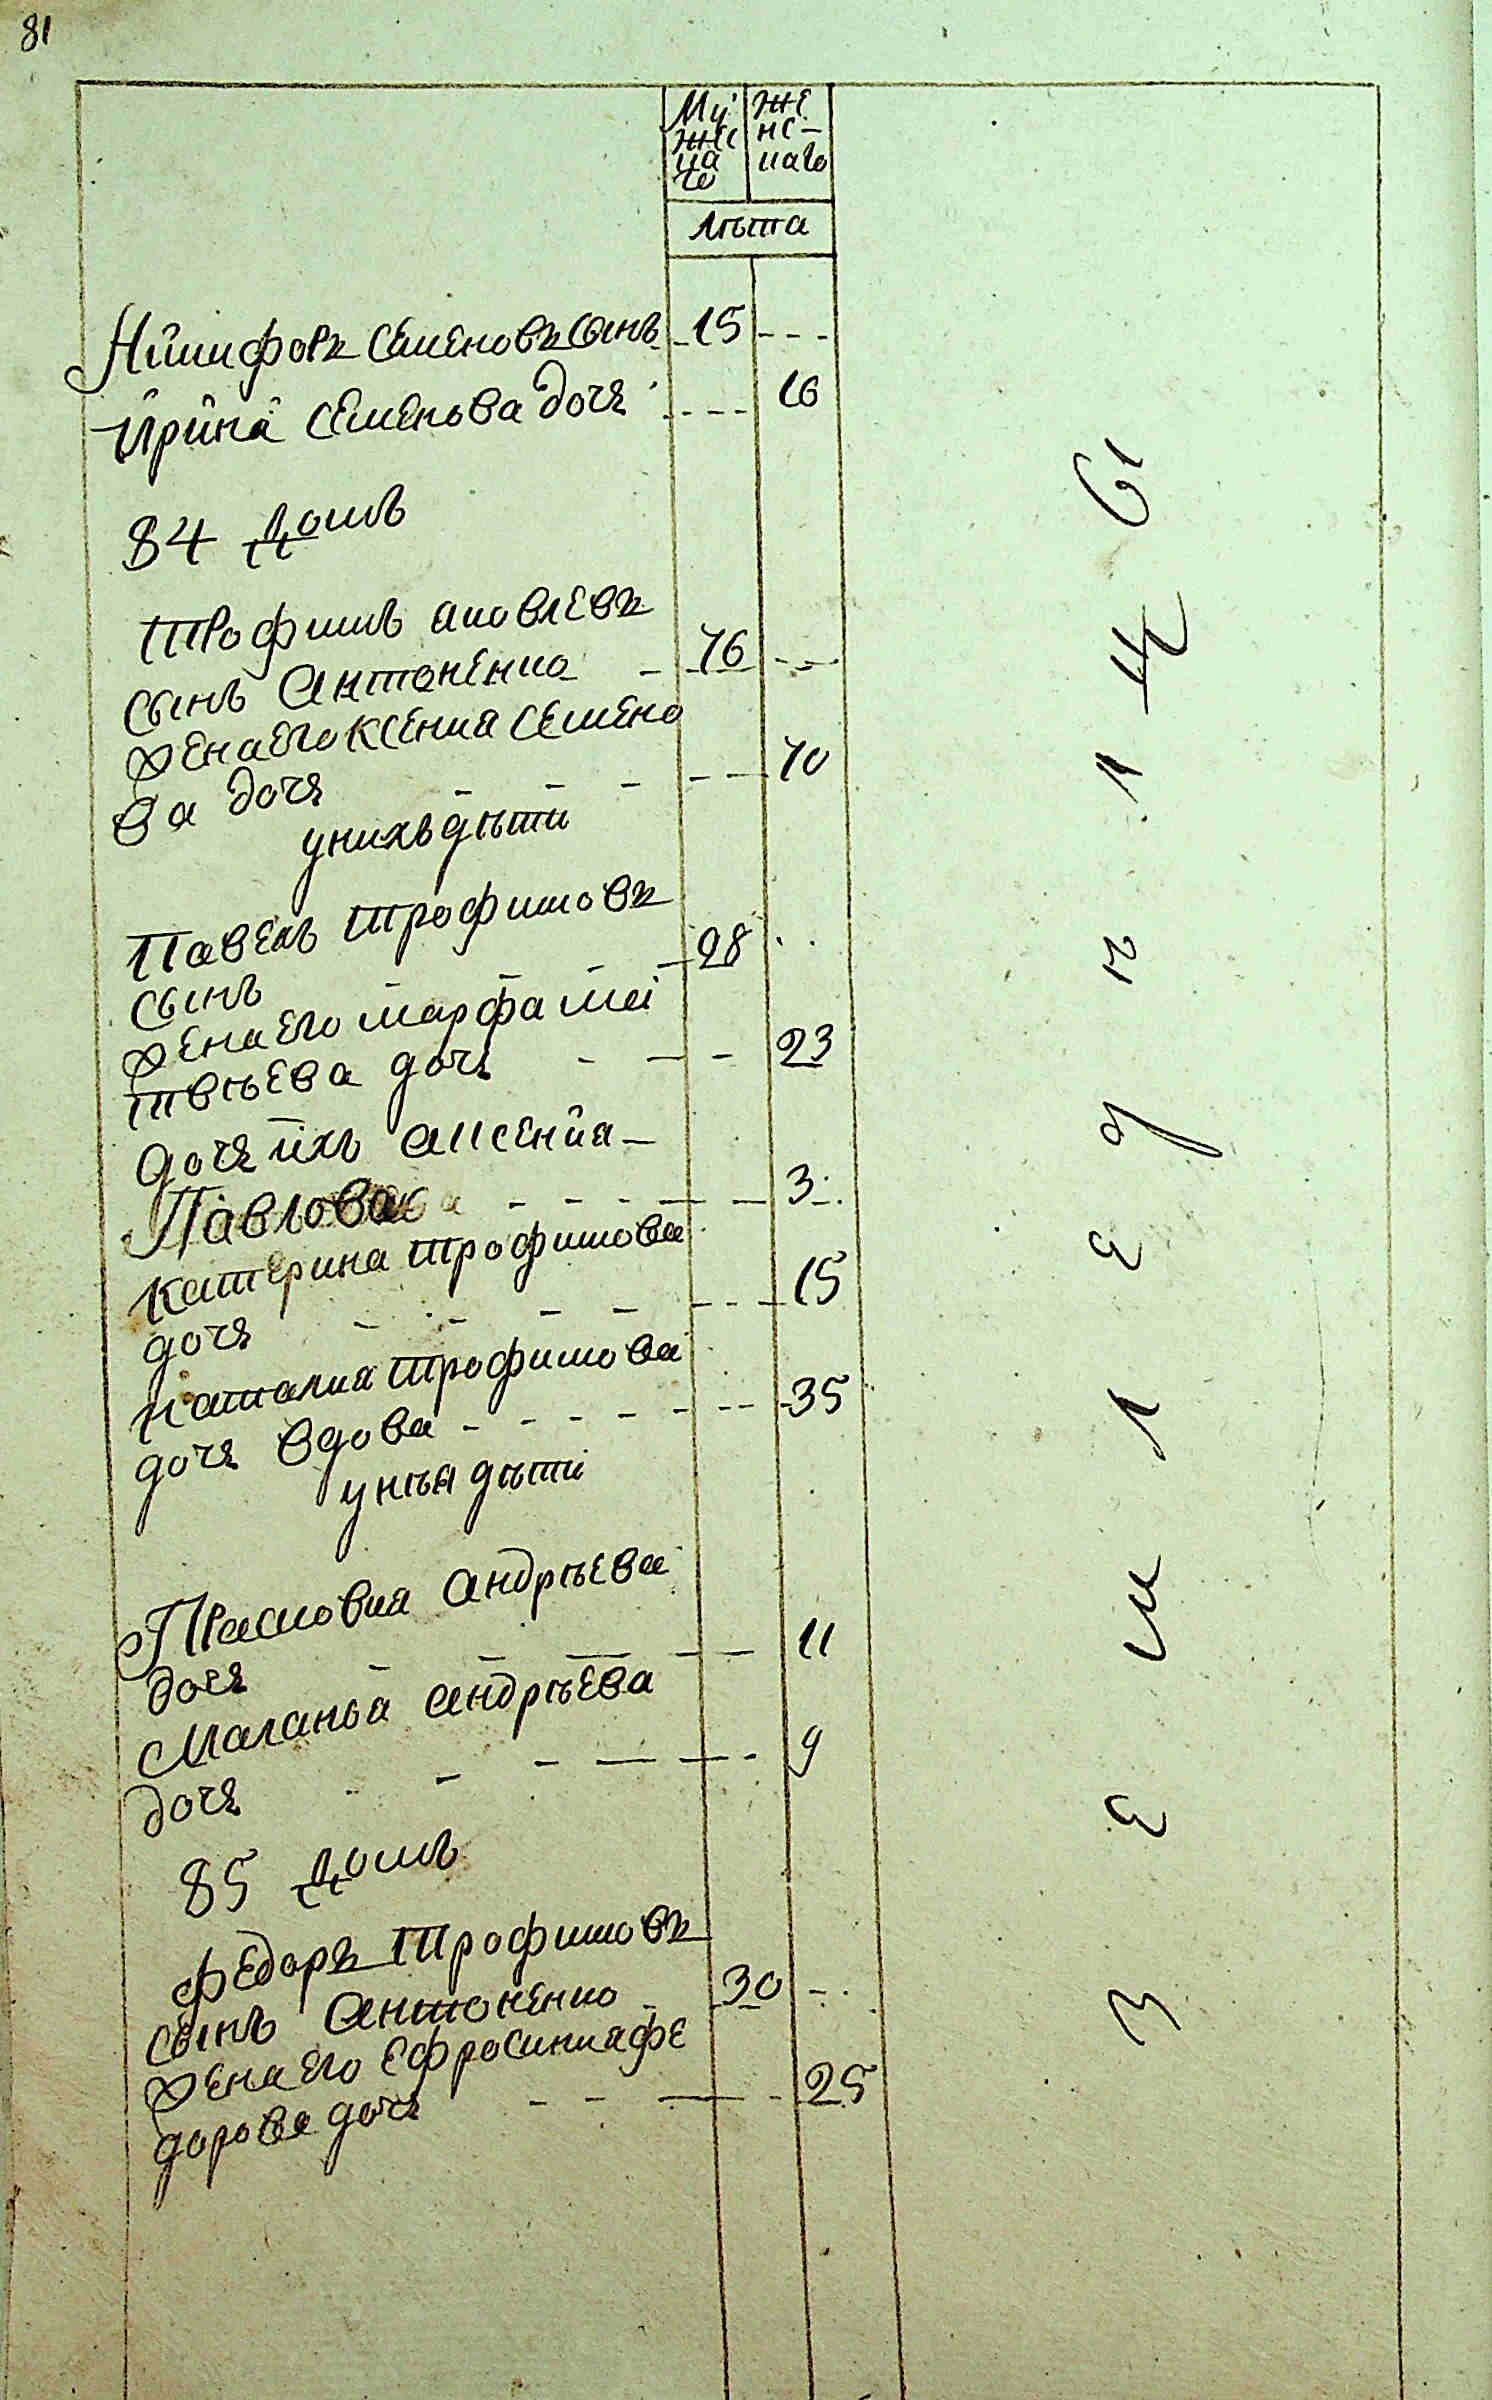 81
Му
жес
ка
го
же
нс-
каго
лѣта
Никифоръ Семеновъ сынъ 15
Ирина Семенова дочь 16
84 Домъ
Трофимъ Яковлевъ
сынъ Антоненко 76
жена его Ксения Семено
ва дочь 70
у нихъ дѣти
Павелъ Трофимовъ
сынъ 28
жена его Марфа Ма
твѣева дочь 23
дочь ихъ Аксения
Павлова 3
Катерина Трофимова
дочь 15
Наталиа Трофимова
дочь вдова 35
у нѣя дѣти
Прасковиа Андрѣева
дочь 11
Маланья Андрѣева
дочь 9
85 Домъ
Федоръ Трофимовъ
сынъ Антоненко 30
жена его Ефросиниа Фе
дорова дочь 25